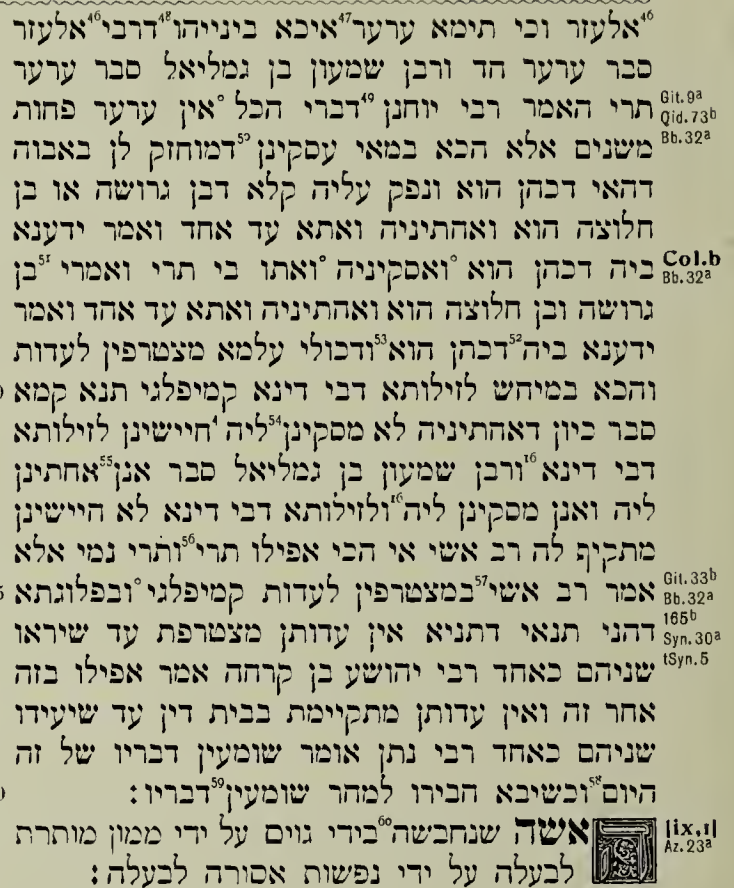 ⁴⁶אלעזר וכי תימא ערער⁴⁷איכא בינייהו⁴⁸דרבי⁴⁶אלעזר
סבר ערער חד ורבן שמעון בן גמליאל סבר ערער
תרי האמר רבי יוחנן⁴⁹דברי הכל °אין ערער פחות Git. 9ᵃ Qid. 73ᵇ
משנים אלא הכא במאי עסקינן⁵⁰דמוחזק לן באבוה Bb. 32ᵃ
דהאי דכהן הוא ונפק עליה קלא דבן גרושה או בן
חלוצה הוא ואחתיניה ואתא עד אחד ואמר ידענא
ביה דכהן הוא °ואסקיניה °ואתו בי תרי ואמרי⁵¹בן Col.b Bb. 32ᵃ
גרושה ובן חלוצה הוא ואחתיניה ואתא עד אחד ואמר
ידענא ביה⁵²דכהן הוא⁵³ודכולי עלמא מצטרפין לעדות
והכא במיחש לזילותא דבי דינא קמיפלגי תנא קמא
סבר כיון דאחתיניה לא מסקינן⁵⁴ליה ⁴חיישינן לזילותא
דבי דינא¹⁶ורבן שמעון בן גמליאל סבר אנן⁵⁵אחתינן
ליה ואנן מסקינן ליה¹⁶ולזילותא דבי דינא לא חיישינן
מתקיף לה רב אשי אי הכי אפילו תרי⁵⁶ותרי נמי אלא
אמר רב אשי⁵⁷במצטרפין לעדות קמיפלגי °ובפלוגתא Git. 33ᵇ Bb. 32ᵃ
דהני תנאי דתניא אין עדותן מצטרפת עד שיראו 165ᵇ Syn. 30ᵃ
שניהם כאחד רבי יהושע בן קרחה אמר אפילו בזה tSyn. 5
אחר זה ואין עדותן מתקיימת בבית דין עד שיעידו
שניהם כאחד רבי נתן אומר שומעין דבריו של זה
היום⁵⁸וכשיבא חבירו למחר שומעין⁵⁹דבריו :
אשה שנחבשה⁶⁰בידי גוים על ידי ממון מותרת [ix,1] Az. 23ᵃ
לבעלה על ידי נפשות אסורה לבעלה :